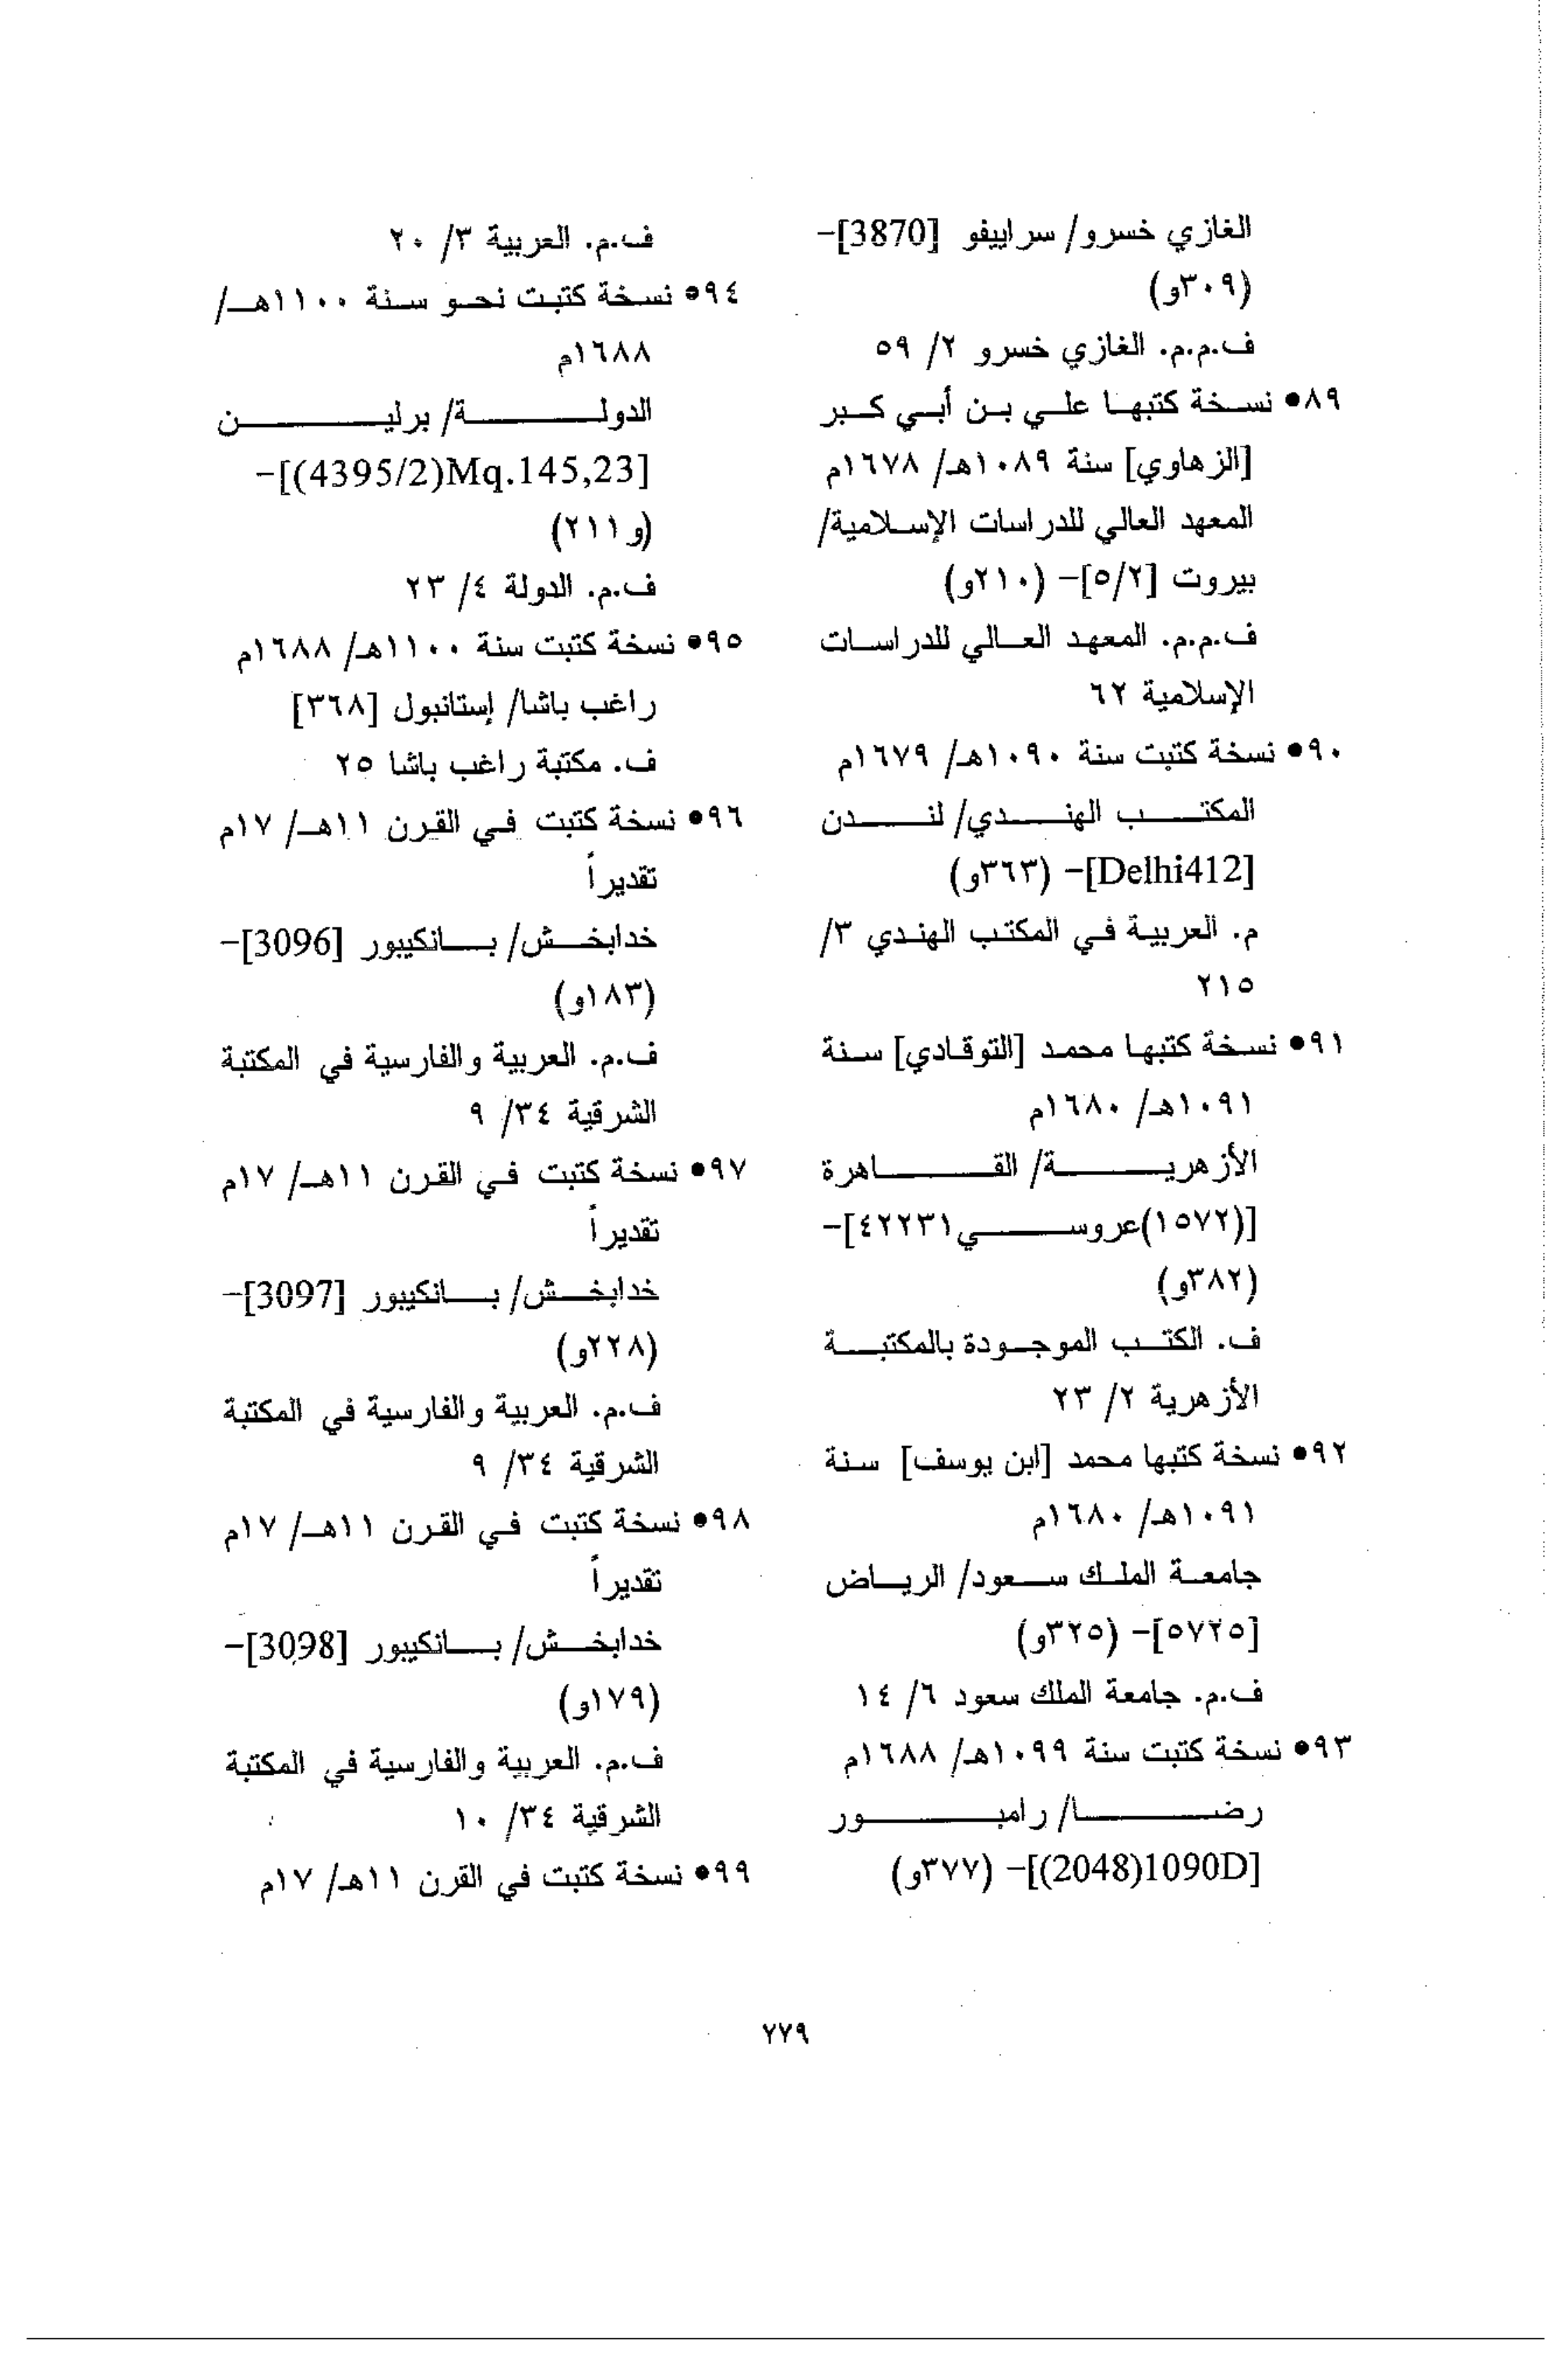 الغازي خسرو/ سراييفو [3870]-
(٣٠٩و)
ف.م.م. الغازي خسرو ٢/ ٥٩
٨٩• نسخة كتبها علي بن أبي كبر
[الزهاوي] سنة ١٠٨٩هـ/ ١٦٧٨م
المعهد العالي للدراسات الإسلامية/
بيروت [٥/٢]- (٢١٠و)
ف.م.م. المعهد العالي للدراسات
الإسلامية ٦٢
٩٠• نسخة كتبت سنة ١٠٩٠هـ/ ١٦٧٩م
المكتب الهندي/ لندن
[Delhi412]- (٣٦٣و)
م. العربية في المكتب الهندي ٣/
٢١٥
٩١• نسخة كتبها محمد [التوقادي] سنة
١٠٩١هـ/ ١٦٨٠م
الأزهرية/ القاهرة
[(١٥٧٢)عروسي٤٢٢٣١]-
(٣٨٢و)
ف. الكتب الموجودة بالمكتبة
الأزهرية ٢/ ٢٣
٩٢• نسخة كتبها محمد [ابن يوسف] سنة
١٠٩١هـ/ ١٦٨٠م
جامعة الملك سعود/ الرياض
[٥٧٢٥]- (٣٢٥و)
ف.م. جامعة الملك سعود ٦/ ١٤
٩٣• نسخة كتبت سنة ١٠٩٩هـ/ ١٦٨٨م
رضا/ رامبور
[(2048)1090D]- (٣٧٧و)
ف.م. العربية ٣/ ٢٠
٩٤• نسخة كتبت نحو سنة ١١٠٠هـ/
١٦٨٨م
الدولة/ برلين
[(4395/2)Mq.145,23]-
(و٢١١)
ف.م. الدولة ٤/ ٢٣
٩٥• نسخة كتبت سنة ١١٠٠هـ/ ١٦٨٨م
راغب باشا/ إستانبول [٣٦٨]
ف. مكتبة راغب باشا ٢٥
٩٦• نسخة كتبت في القرن ١١هـ/ ١٧م
تقديراً
خدابخش/ بانكيبور [3096]-
(١٨٣و)
ف.م. العربية والفارسية في المكتبة
الشرقية ٣٤/ ٩
٩٧• نسخة كتبت في القرن ١١هـ/ ١٧م
تقديراً
خدابخش/ بانكيبور [3097]-
(٢٢٨و)
ف.م. العربية والفارسية في المكتبة
الشرقية ٣٤/ ٩
٩٨• نسخة كتبت في القرن ١١هـ/ ١٧م
تقديراً
خدابخش/ بانكيبور [3098]-
(١٧٩و)
ف.م. العربية والفارسية في المكتبة
الشرقية ٣٤/ ١٠
٩٩• نسخة كتبت في القرن ١١هـ/ ١٧م
٧٧٩